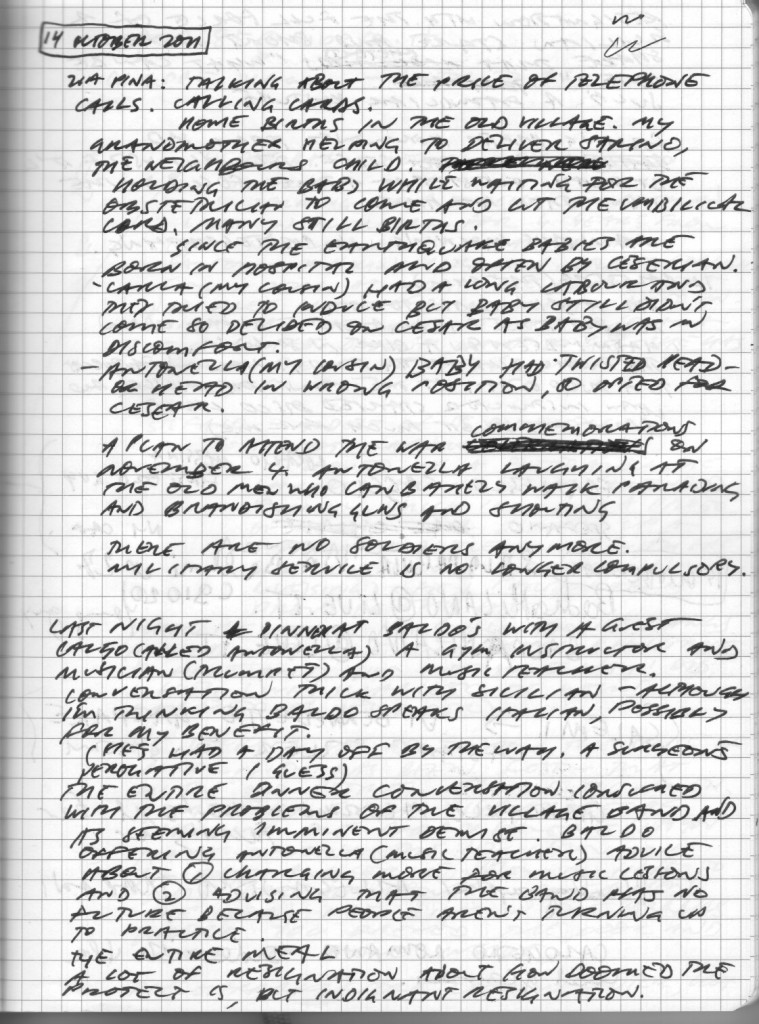 14 OCTOBER 2011
ZIA PINA: TALKING ABOUT THE PRICE OF TELEPHONE
CALLS. CALLING CARDS.
HOME BIRTHS IN THE OLD VILLAGE. MY
GRANDMOTHER HELPING TO DELIVER SARINO,
THE NEIGHBOURS CHILD.
HOLDING THE BABY WHILE WAITING FOR THE
OBSTETRICIAN TO COME AND CUT THE UMBILICAL
CORD. MANY STILL BIRTHS.
SINCE THE EARTHQUAKE BABIES ARE
BORN IN HOSPITAL AND OFTEN BY CESERIAN.
- CARLA (MY COUSIN) HAD A LONG LABOUR AND
THEY TRIED TO INDUCE BUT BABY STILL DIDN'T
COME SO DECIDED ON CESAR AS BABY WAS IN
DISCOMFORT.
- ANTONELLA (MY COUSIN) BABY HAD TWISTED HEAD -
OR HEAD IN WRONG POSITION, SO OPTED FOR
CESEAR.
COMMEMORATIONS
A PLAN TO ATTEND THE WAR ON
NOVEMBER 4. ANTONELLA LAUGHING AT
THE OLD MEN WHO CAN BARELY WALK PARADING
AND BRANDISHING GUNS AND SHOUTING
THERE ARE NO SOLDIERS ANYMORE.
MILITARY SERVICE IS NO LONGER COMPULSORY.
LAST NIGHT DINNER AT BALDO'S WITH A GUEST
(ALSO CALLED ANTONELLA) A GYM INSTRUCTOR AND
MUSICIAN (TRUMPET) AND MUSIC TEACHER.
CONVERSATION THICK WITH SICILIAN - ALTHOUGH
I'M THINKING BALDO SPEAKS ITALIAN, POSSIBLY
FOR MY BENEFIT.
(HE'S HAD A DAY OFF BY THE WAY. A SURGEON'S
PEROGATIVE I GUESS)
THE ENTIRE DINNER CONVERSATION CONSUMED
WITH THE PROBLEMS OF THE VILLAGE BAND AND
ITS SEEMING IMMINENT DEMISE. BALDO
OFFERING ANTONELLA (MUSIC TEACHER) ADVICE
ABOUT 1 CHARGING MORE FOR MUSIC LESSONS
AND 2 ADVISING THAT THE BAND HAS NO
FUTURE BECAUSE PEOPLE AREN'T TURNING UP
TO PRACTICE.
THE ENTIRE MEAL
A LOT OF RESIGNATION ABOUT HOW DOOMED THE
PROJECT IS, BUT INDIGNANT RESIGNATION.